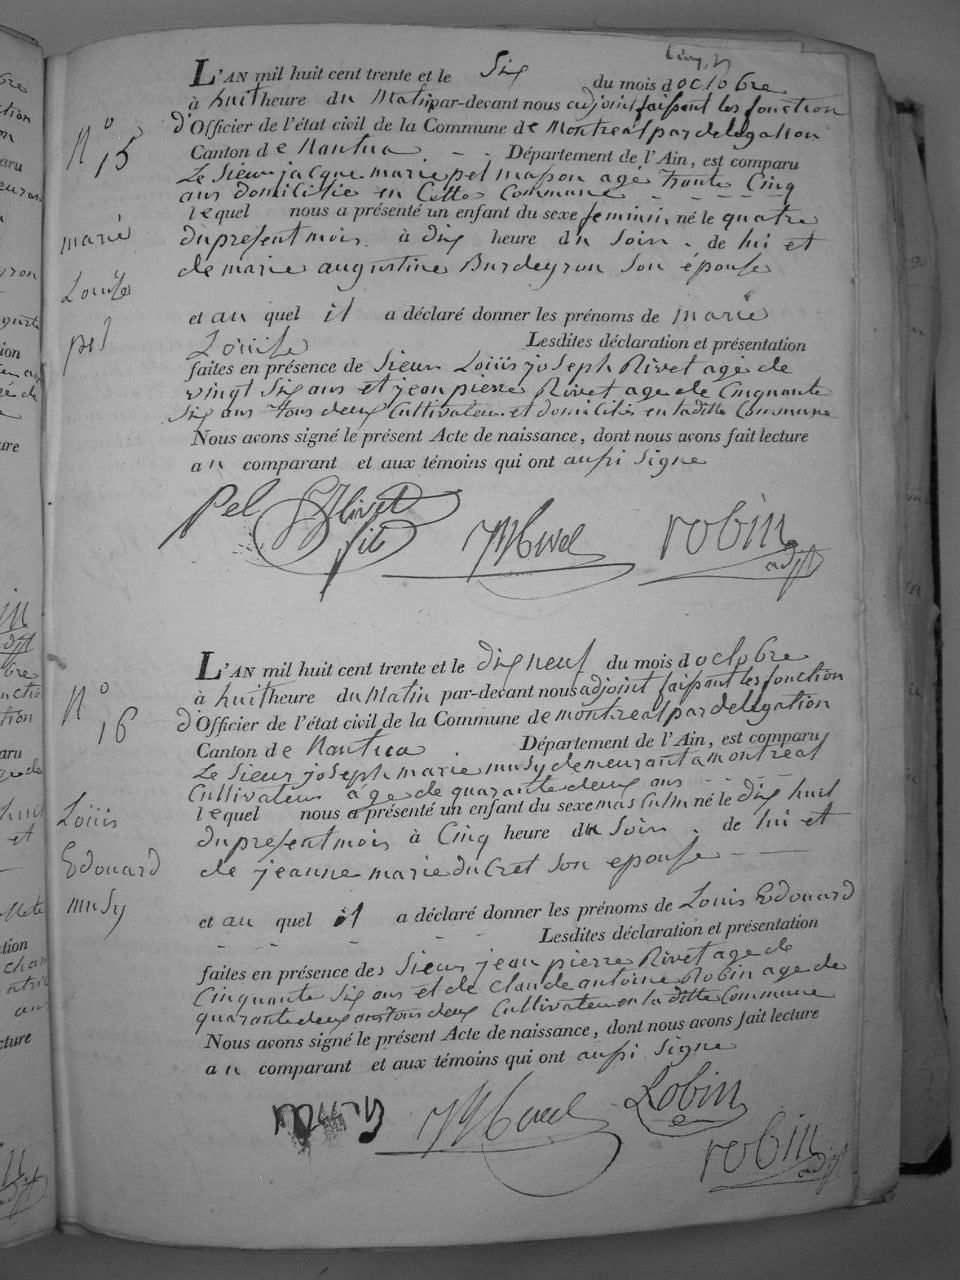 N° 15
marie
Louise
pel
L'AN mil huit cent trente et le Six du mois d octobre
à huit heure du Matin par-devant nous adjoint faisant les fonction
d'Officier de l'état civil de la Commune de montreal par delegation
Canton de Nantua . - - Département de l'Ain, est comparu
Le Sieur jacque marie pel masson agé Trante Cinq
ans domicilié en Cette Commune - - - - -
lequel nous a présenté un enfant du sexe feminin né le quatre
du present mois . à dix heure du Soir . de lui et
de marie augustine Burdeyron Son épouse
et au quel il a déclaré donner les prénoms de marie
Louise Lesdites déclaration et présentation
faites en présence de Sieur Loüis joseph Rivet agé de
vingt Six ans et jean pierre Rivet age de Cinquante
Six ans Tous deux Cultivateur et domiciliés en la ditte Commune
Nous avons signé le présent Acte de naissance, dont nous avons fait lecture
au comparant et aux témoins qui ont aussi Signe
Pel Rivet fils Rivet robin adjt
N° 16
Loüis
Edouard
musy
L'AN mil huit cent trente et le dix neuf du mois d octobre
à huit heure du Matin par-devant nous adjoint faisant les fonction
d'Officier de l'état civil de la Commune de montreal par delegation
Canton de Nantua . Département de l'Ain, est comparu
Le Sieur joseph marie musy demeurant a montreal
Cultivateur age de quarante deux ans - - - -
lequel nous a présenté un enfant du sexe masculin né le dix huit
du present mois à Cinq heure du Soir . de lui et
de jeanne marie ducret Son epouse - -
et au quel il a déclaré donner les prénoms de Louis Edouard
- - - - - Lesdites déclaration et présentation
faites en présence des Sieur jean pierre Rivet age de
Cinquante Six ans et de claude antoine Robin age de
quarante deux ans tous deux Cultivateur en la ditte Commune
Nous avons signé le présent Acte de naissance, dont nous avons fait lecture
au comparant et aux témoins qui ont aussi Signe
Rivet Robin
robin adjt